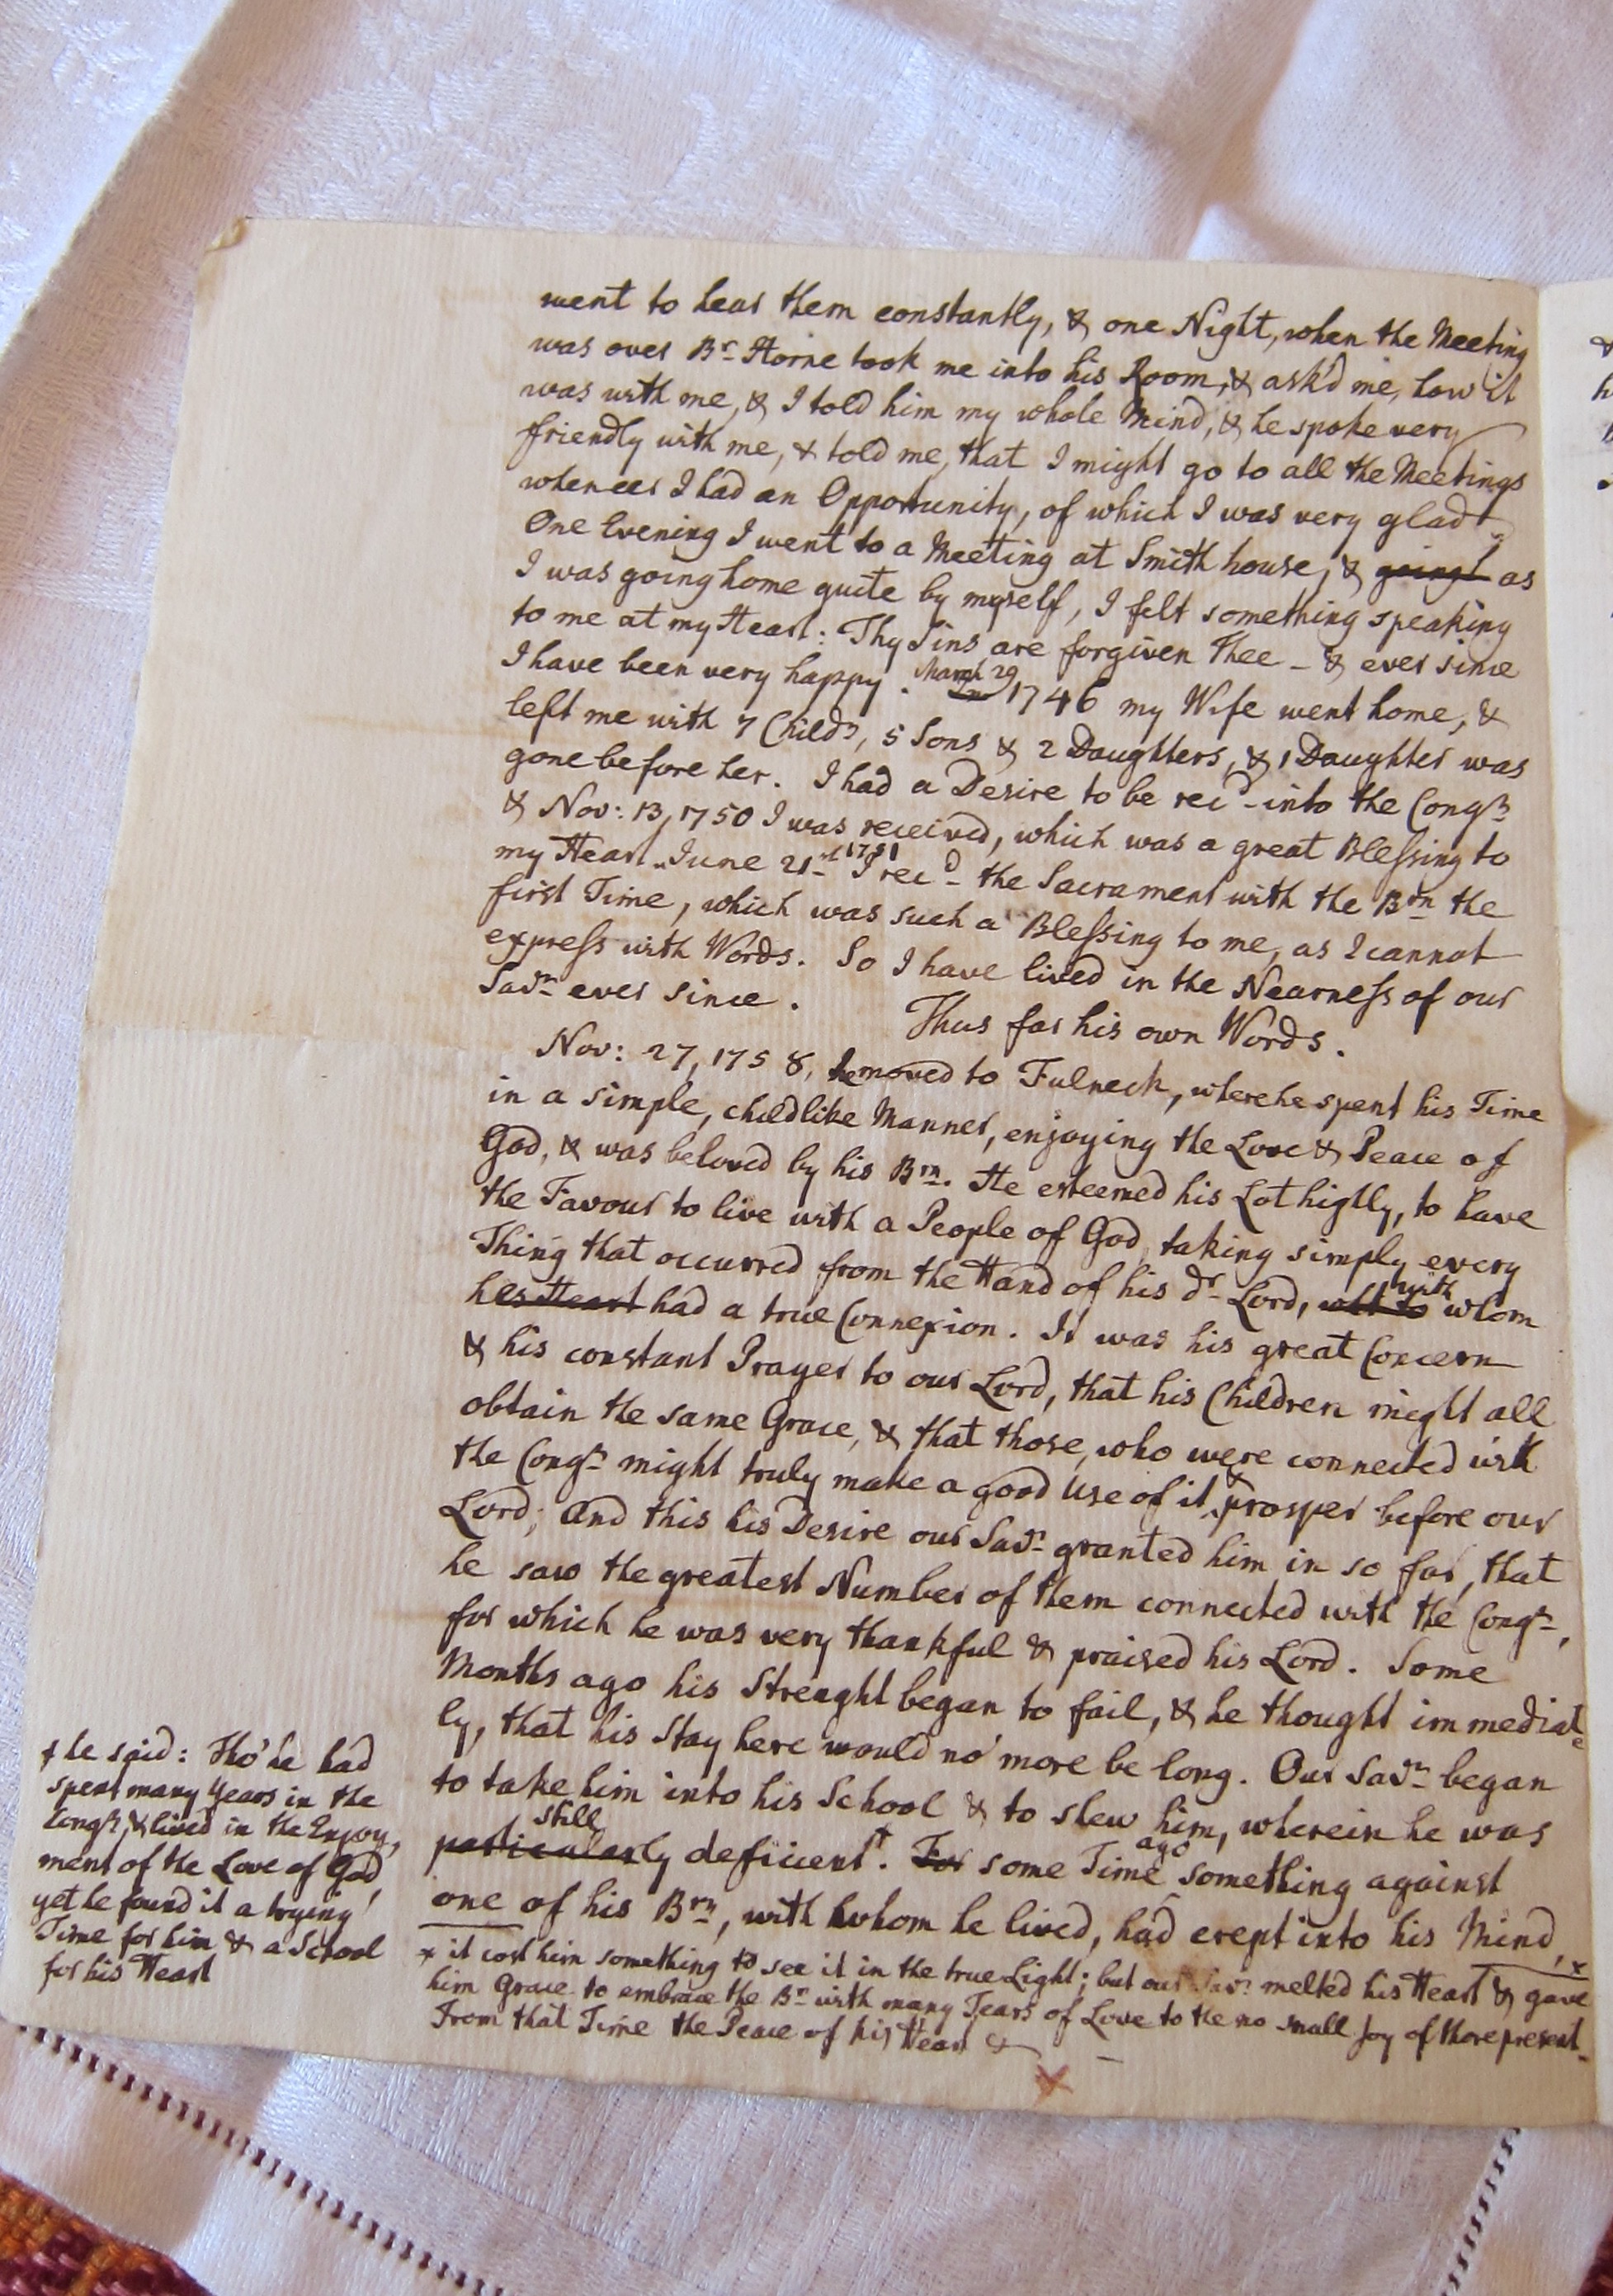 went to hear them constantly, & one Night, when the Meeting
was over Br. Horne took me into his Room, & ask'd me, how it
was with me, & I told him my whole Mind, & he spoke very
friendly with me, & told me, that I might go to all the Meetings
whenever I had an Opportunity, of which I was very glad.
One Evening I went to a Meeting at Smith house, & going as
I was going home quite by myself, I felt something speaking
to me at my Heart: Thy Sins are forgiven Thee – & ever since
I have been very happy. March 29 1746 my Wife went home, &
left me with 7 Childn, 5 Sons & 2 Daughters, & 1 Daughter was
gone before her. I had a Desire to be recd into the Congn
& Nov: 13, 1750 I was received, which was a great Blessing to
my Heart. June 21st 1751 I recd the Sacrament with the Brn the
first Time, which was such a Blessing to me, as I cannot
express with Words. So I have lived in the Nearness of our
Savr ever since. Thus far his own Words.
Nov: 27, 1758, he moved to Fulneck, where he spent his Time
in a simple, childlike Manner, enjoying the Love & Peace of
God, & was beloved by his Brn. He esteemed his Lot highly, to have
the Favour to live with a People of God, taking simply every
Thing that occurred from the Hand of his dr Lord, with whom
his Heart had a true Connexion. It was his great Concern
& his constant Prayer to our Lord, that his Children might all
obtain the same Grace, & that those, who were connected with
the Congn might truly make a good Use of it & prosper before our
Lord; And this his Desire our Savr granted him in so far, that
he saw the greatest Number of them connected with the Congn,
for which he was very thankful & praised his Lord. Some
Months ago his Strenght began to fail, & he thought immediate
ly, that his Stay here would no more be long. Our Savr began
to take him into his School & to shew him, wherein he was
particularly still deficient. † For some Time ago something against
one of his Brn, with whom he lived, had crept into his Mind, x
x it cost him something to see it in the true Light; but our Savr melted his Heart & gave
him Grace to embrace the Br with many Tears of Love to the no small Joy of those present.
From that Time the Peace of his Heart &
† he said: Tho' he had
spent many Years in the
Congn, & lived in the Enjoy,
ment of the Love of God,
yet he found it a trying
Time for him & a School
for his Heart